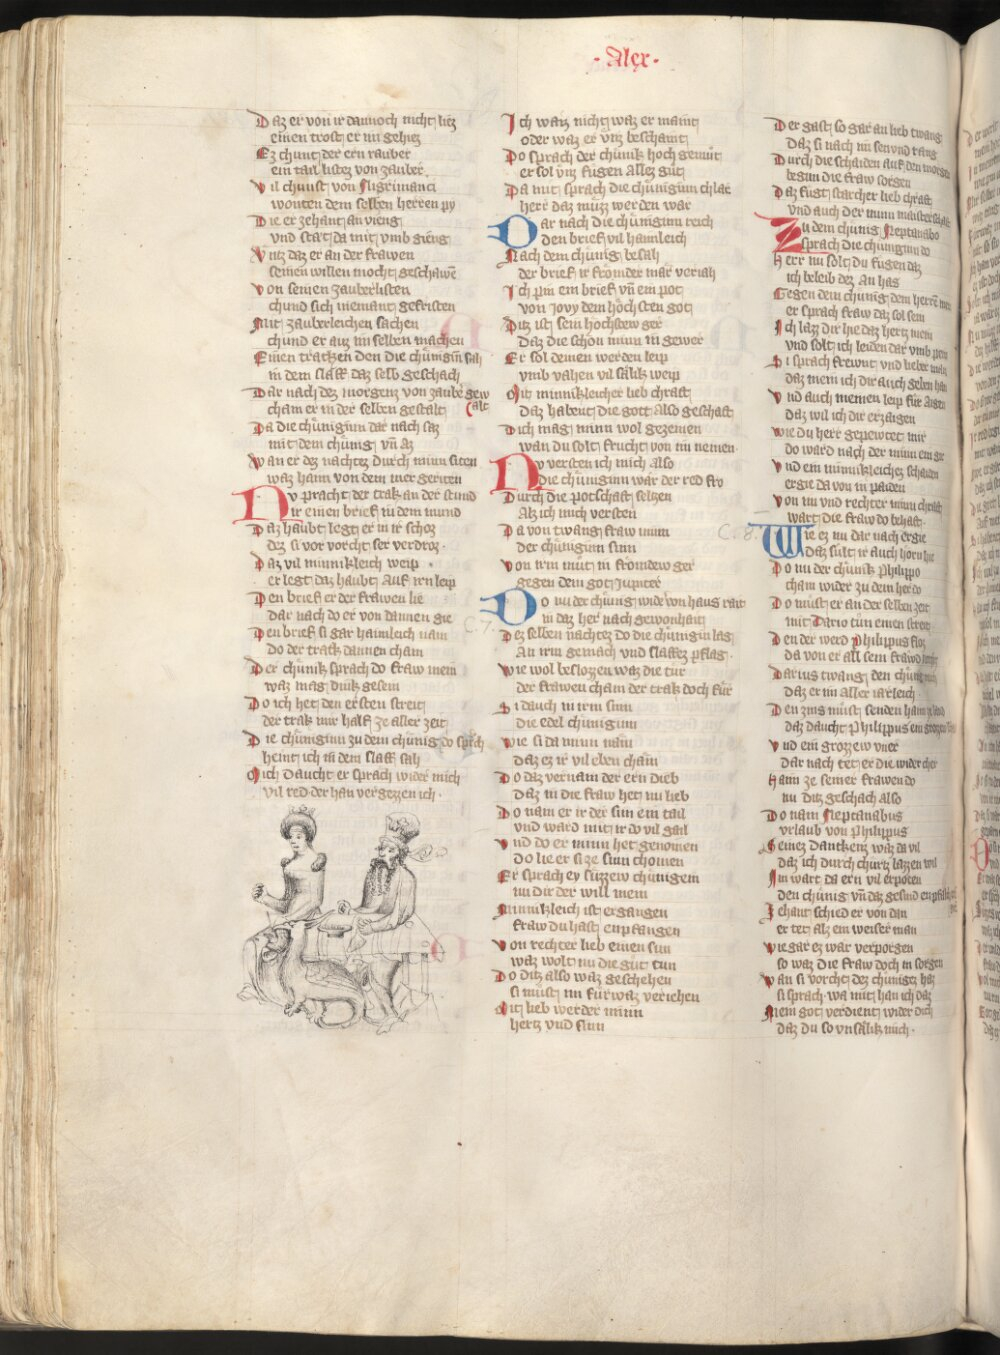 · Alex ·
Daz er von ir dannoch nicht liez
einen trost er im gehiez
Ez chunt der ern rauber
ein tail listez von zauber
Vil chunst von Nigrimanci
wonten dem selben herren py
Die er zehant an vieng
vnd stat da mit vmb gieng
Vntz daz er an der frawen
seinen willen mocht geschawē
Von seinen zauberlisten
chund sich niemant gefristen
Mit zauberleichen sachen
chund er auz im selben machen
Einen trakchen den die chünigin sah
in dem slaff daz selb geschach
Dar nach dez morgenz von zauber gew
cham er in der selben gestalt (alt
Da die chünigiun dar nach saz
mit dem chünig vn̄ az
Wan er dez nachtez durch minn siten
waz haim von dem mer geriten
Nv pracht der trak an der stund
ir einen brief in dem mund
Daz haubt legt er in ir schoz
dez si vor vorcht ser verdroz ·
Daz vil minnikleich weip ·
er legt daz haubt Auf irn leip
Den brief er der frawen lie
dar nach do er von dannen gie
Den brief si gar haimleich nam
do der trakk dannen cham
Der chünik sprach do fraw mein
waz mag dink gesein
Do ich het den ersten streit
der trak mir half ze aller zeit
Die chüniginn zu dem chünig do sprch
heint ich in dem slaff sah
Mich daucht er sprach wider mich
vil red der han vergezzen ich ·
Ich waiz nicht waz er maint
oder waz er vnz beschaint
Do sprach der chünik hoch gemüt
er sol vnz fügen allez güt
Da mit sprach die chüniginn chlar
herr daz müzz werden war
Dar nach die chüniginn reich
den brief vil haimleich
Nach dem chünig besah
der brief ir frömder mär veriah
Ich pim ein brief vn̄ ein pot
von Jovy dem höchsten got
Ditz ist sein höchstew ger
daz die schön minn in gewer
Er sol deinen werden leip
vmb vahen vil sälik weip
Mit minnikleicher lieb chrafft
daz habent die gott also geschaft
Dich mag minn wol gezemen
wan du solt frucht von im nemen ·
Nv versten ich mich also
die chüniginn war der red fro
Durch die potschaft seltzen
Alz ich mich versten
Da von twang fraw minn
der chüniginn sinn
Von irm müt in frömdew ger
gegen dem got Jupiter
Do nu der chünig wider von haus rait
in daz her nach gewonhait
C. 7.
Dez selben nachtez do die chünigin lag
An irm gemach vnd slaffez pflag ·
Wie wol beslozzen waz die tür
der frawen cham der trak doch für
Si dauch in irm sinn
die edel chüniginn
Wie si da minn näm
daz ez ir vil eben cham
Do daz vernam der ern dieb
daz in die fraw het nu lieb
Do nam er ir der sin ein tail
vnd ward mit ir do vil gail
Vnd do er minn het genomen
do lie er si ze sinn chomen
Er sprach ey süzzew chünigein
nu dir der will mein
Minnikleich ist ergangen
fraw du hast enpfangen
Von rechter lieb einen sun
waz wolt nu die güt tun
Do ditz also waz geschehen
si müst im für waz veriehen
Mit lieb werder minn
hertz vnd sinn
Der gast so gar an lieb twang
daz si nach im sen vnd rang
Durch die schaiden auf den morgen
begun die fraw sorgen
Daz fügt starcher lieb chraft
vnd auch der minn maisterschaft
Zu dem chünig Neptanabo
sprach die chüniginn do
Herr nu solt du fügen daz
ich beleib dez An has
Gegen dem chünig dem herrē mein
er sprach fraw daz sol sein
Ich laz dir hie daz hertz mein
vnd solt ich leiden dar vmb pein
Si sprach frewnt vnd lieber man
daz mein ich dir auch geben han
Vnd auch meinen leip für Aigen
daz wil ich dir erzaigen
Wie du herr gepewtet mir
do ward nach der minn ein gir
Vnd ein minnikleichez schaiden
ergie da von in paiden
Von im vnd rechter minn chraft
wart die fraw do behaft ·
C. 8.
Wie ez nu dar nach ergie
daz sült ir auch horn hie
Do nu der chünik Philippo
cham wider zu dem her do
Do müst er an der selben zeit
mit Dario tün einen streit
Den der werd Philippus floz
da von er all sein frawd
Darius twang den chünig
daz er im Aller iärleich
Den zins müst senden haim ze land
daz daucht Philippus ein grozze
Vnd ein grozzew vner
dar nach tet er die wider cher
Haim ze seiner frawen do
nu ditz geschach also
Do nam Neptanabus
vrlaub von Philippus
Seinez dankenz waz da vil
daz ich durch churtz lazzen wil
Im wart da ern vil erpoten
den chünig vn̄ daz gesind
Zehant schied er von dan
er tet alz ein weiser man
Wie gar ez war verporgen
so waz die fraw doch in sorgen
Wan si vorcht dez chünigez haz
si sprach · wa mit han ich daz
Mein got verdient wider dich
daz du so vnsälik mich ·